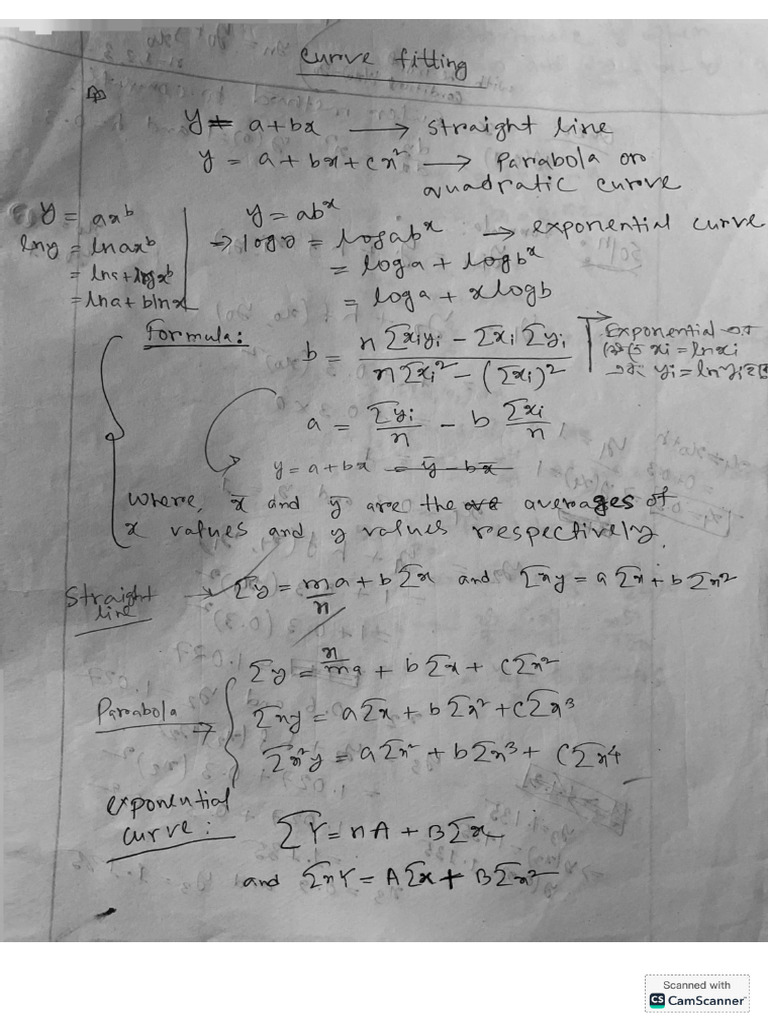 curve fitting
y = a + bx → straight line
y = a + bx + cx² → Parabola or
quadratic curve
y = ax^b
lny = lnax^b
= lna + logx^b
= lna + blnx
y = ab^x
→ logy = logab^x → exponential curve
= loga + logb^x
= loga + xlogb
Formula:
b = (n Σxiyi − Σxi Σyi) / (n Σxi² − (Σxi)²)
Exponential এর
xi = lnxi
এবং yi = lnyi
a = Σyi/n − b Σxi/n
y = a + bx = ȳ − bx̄
where, x̄ and ȳ are the averages of
x values and y values respectively.
Straight line → Σy = m/n a + bΣx and Σxy = aΣx + bΣx²
Parabola →
Σy = n/m a + bΣx + cΣx²
Σxy = aΣx + bΣx² + cΣx³
Σx²y = aΣx² + bΣx³ + cΣx⁴
exponential
curve:
ΣY = nA + BΣx
and ΣxY = AΣx + BΣx²
Scanned with
CS CamScanner